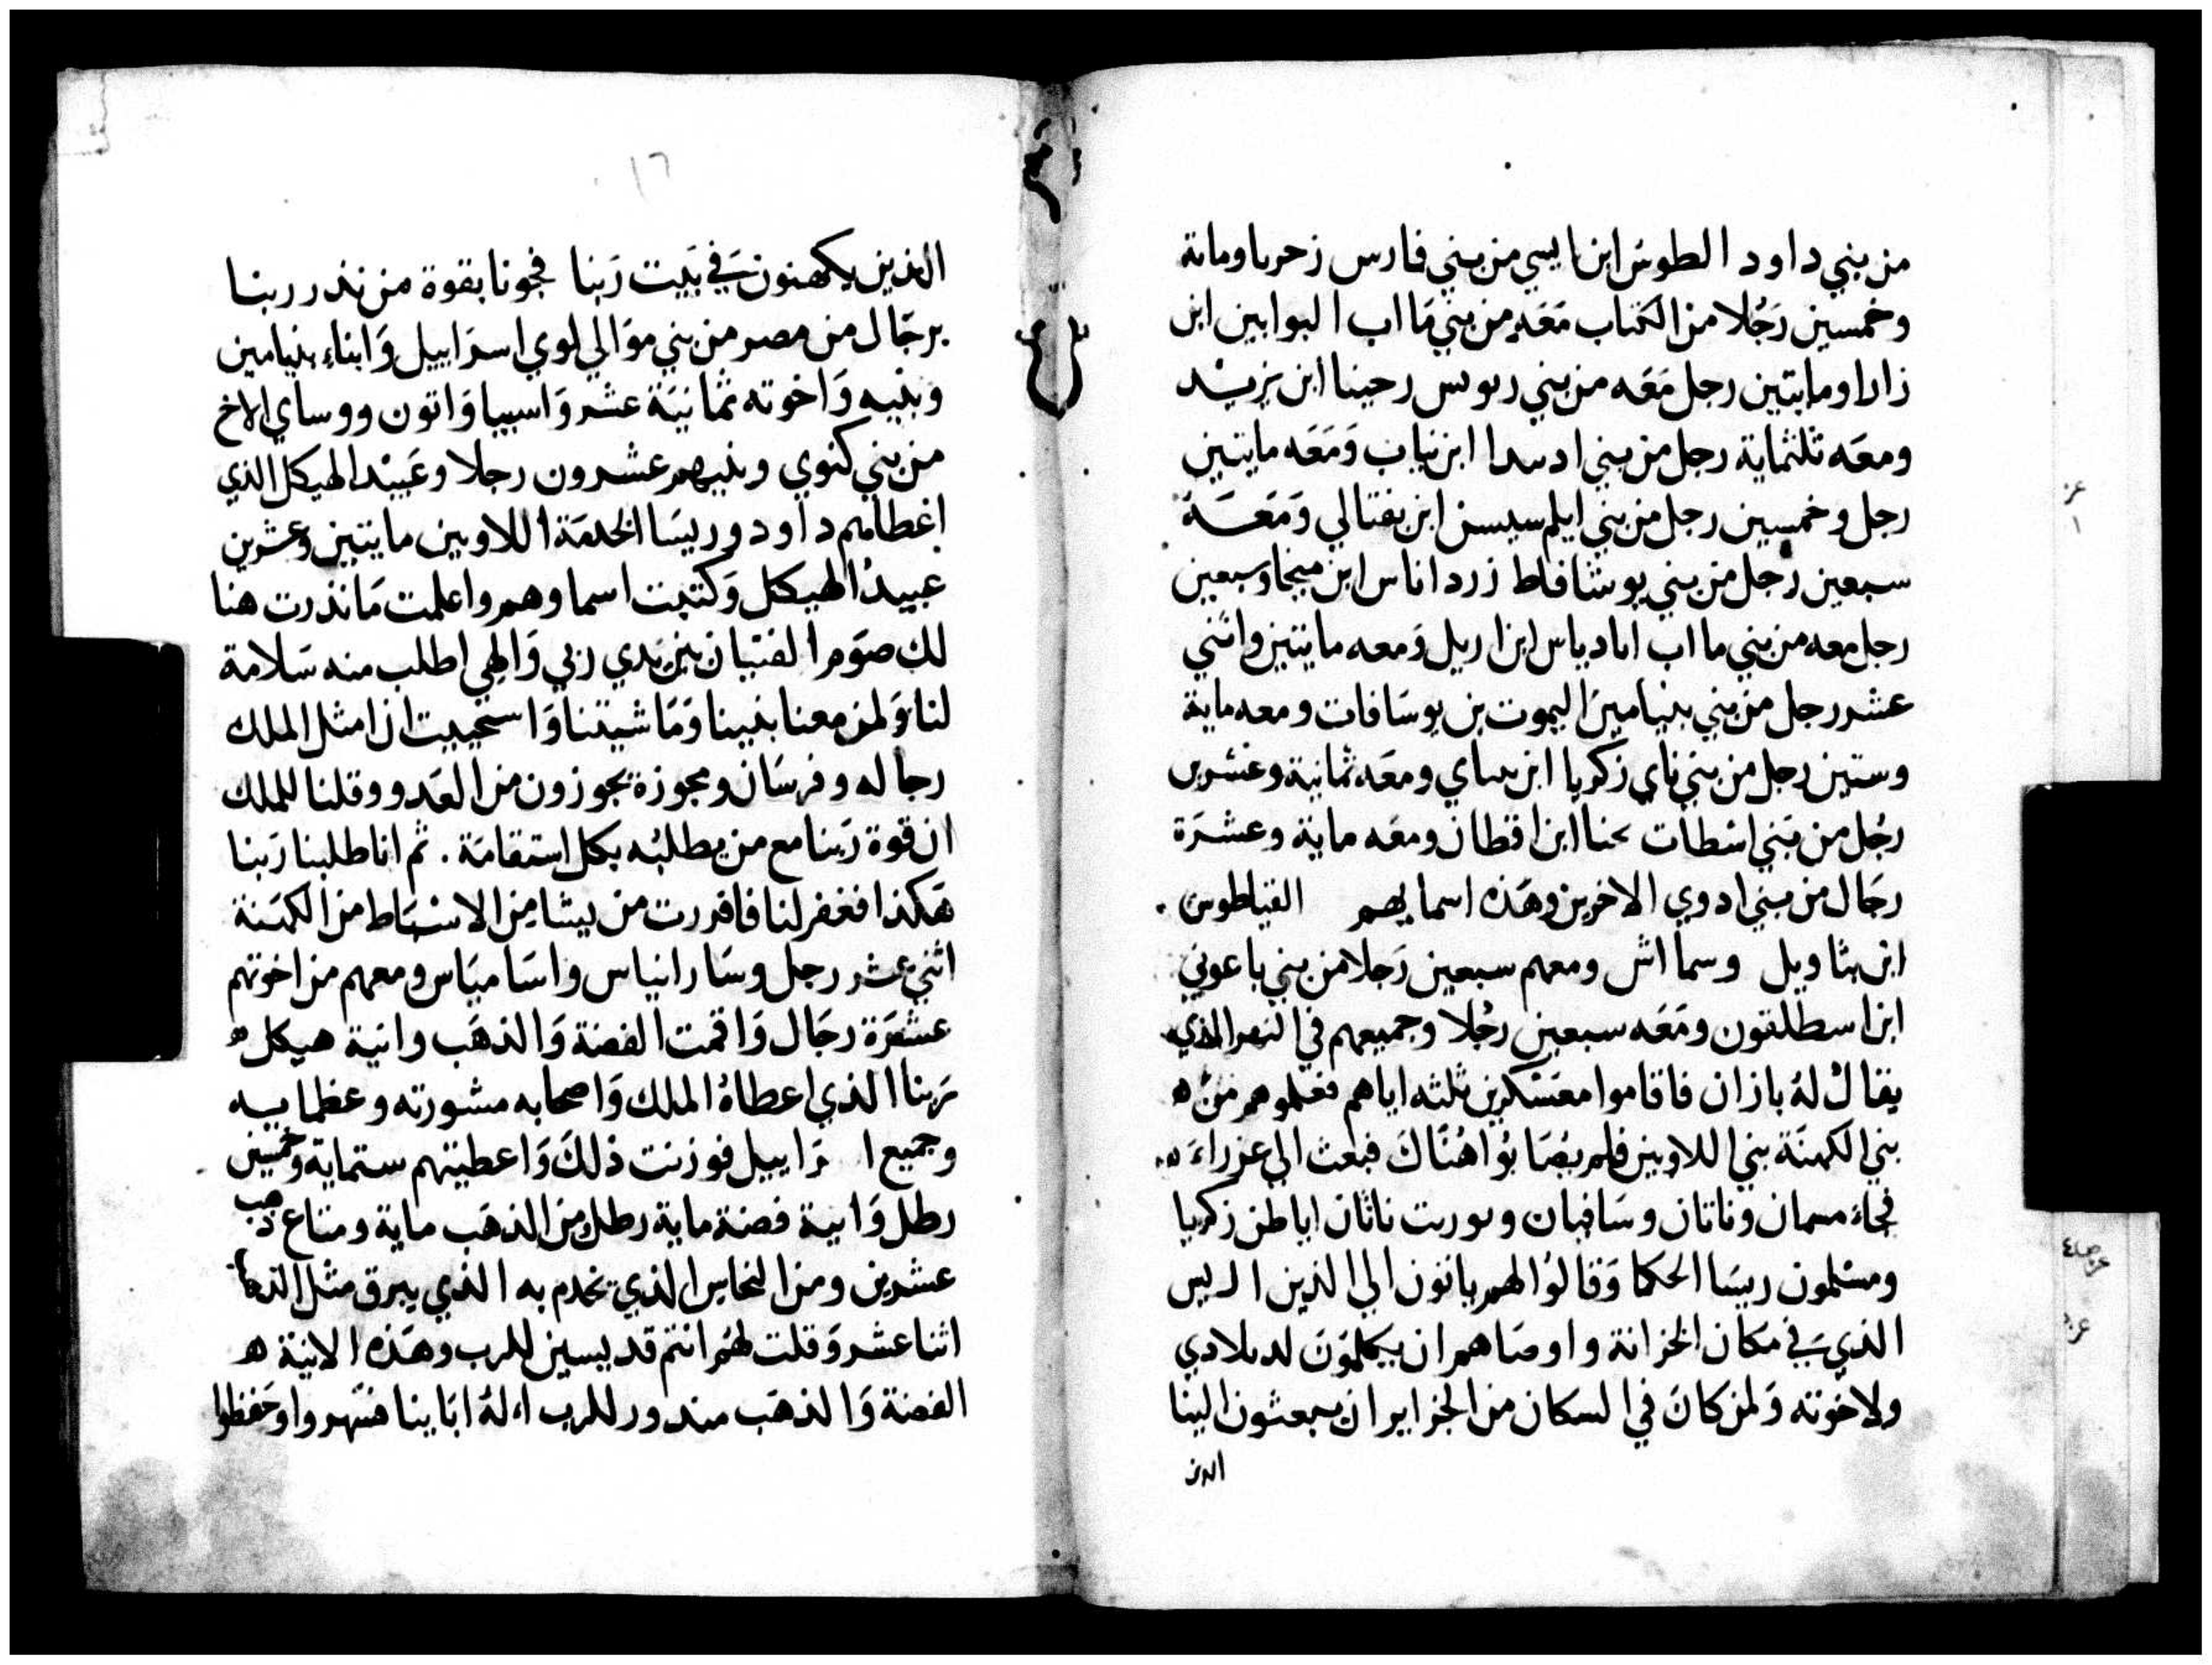 من بني داود الطوس ابن ايسي من بني فارس زحريا وماية
وخمسين رَجُلا من الكتاب مَعَه من بني مَااب البوابين ابن
زارا ومايتين رجل مَعَه من بني ربوس رحينا ابن يزيد
ومعَه ثلثماية رجل من بني ادسدا ابن نياب وَمَعَه مايتين
رجل وخمسين رجل من بني ايلم سيسن ابن بفتالي وَمَعَه
سبعين رجل من بني يوشافاط زرد اناس ابن ميخا وسبعين
رجل معه من بني مااب اباديا س ابن اريل وَمعه مايتين واثني
عشر رجل من بني بنيامين اليموت بن يوسَافات ومعه ماية
وستين رجل من بني ناي زكريا ابن بساي ومعَه ثمانية وعشرين
رجُل من بَني اسْطات يحنا ابن اقطان ومعَه ماية وعشرَة
رجَال من بني ادوي الاخرين وهَذه اسمايهم القياطوس
ابن بثاويل وسمااش ومعهم سبعين رَجلا من بني باعوني
ابن اسطلقون ومَعَه سبعين رجُلا وجميعهم في النهر الذي
يقال لهُ بازان فاقاموا معَسْكرين ثلثه اياهم فعلموهم من ه
بني الكهنَة بني اللاويين فلم يصَابُوا هُنَاكَ فبعث الي عزراءَ
فجاءَ مسمان وناتان وسَافهان وبوريت ناثان اياطن زكريا
ومسْلمون ريسَا الحكما وَقالوُا لهم ياتون الي الذين الريس
الذي في مَكان الخزانة واوصَاهم ان يكلموَن لد بلادي
ولاخوَته وَلمن كانَ في السكان من الخزاير ان يبعثون الينا
الدين
١٦
الذين يكهنون في بَيت رَبنا فجونا بقوة من نذر ربنا
برجَال من مصر من بني موَالي لوي اسرَاييل وَابناء بنيامين
وبنيه وَاخوته ثمانيَة عشر وَاسبيا وَاتون ووساي الاخ
من بني كنوي وبنيهم عشرون رجلا وعَبيْد الهيكل الذي
اعْطاهم داود وريسَا الخدمَة اللاويين مايتين وعشرين
عبيدُ الهيكل وَكتبت اسماوهم واعلمت مَا نذرت هنا
لك صوَم الفتيان بين يَدي ربي وَالهي اطلب منه سَلامة
لنا وَلمن معنا بنينا وَمَاشيتنا وَاستحييت ان امثل الملك
رجاله وفرسَان ومجوزة يجوزون من العَدو وقلنا للملك
ان قوة رَبنا مع من يطلبُه بكل استقامَة . ثم انا طلبنا رَبنا
هَكذا فغفر لنا فافررت من ييشا من الاسْبَاط من الكهَنة
اثني عشر رجل وسَارانياس واسَامبَاس ومعهم من اخوتهم
عشَرَة رجَال وَاقمت الفضة وَالذهَب وانية هيكل ه
رَبنا الذي اعطاهُ الملك وَاصحابه مشورته وعظمايه
وجميع ا رَاييل فوزنت ذلكَ وَاعطيتهم ستماية وخمسين
رطل وَانية فضة ماية رطل من الذهَب ماية ومتاع ذهب
عشرين ومن النحاس الذي تخدم به الذي يبرق مثل الذهب
اثنا عشر وَقلت لهُم انتم قديسين للرب وهَذه الانيَة ه
الفضة وَالذهَب مندور للرب الهُ ابَاينا فسَهروا وحَفظوا